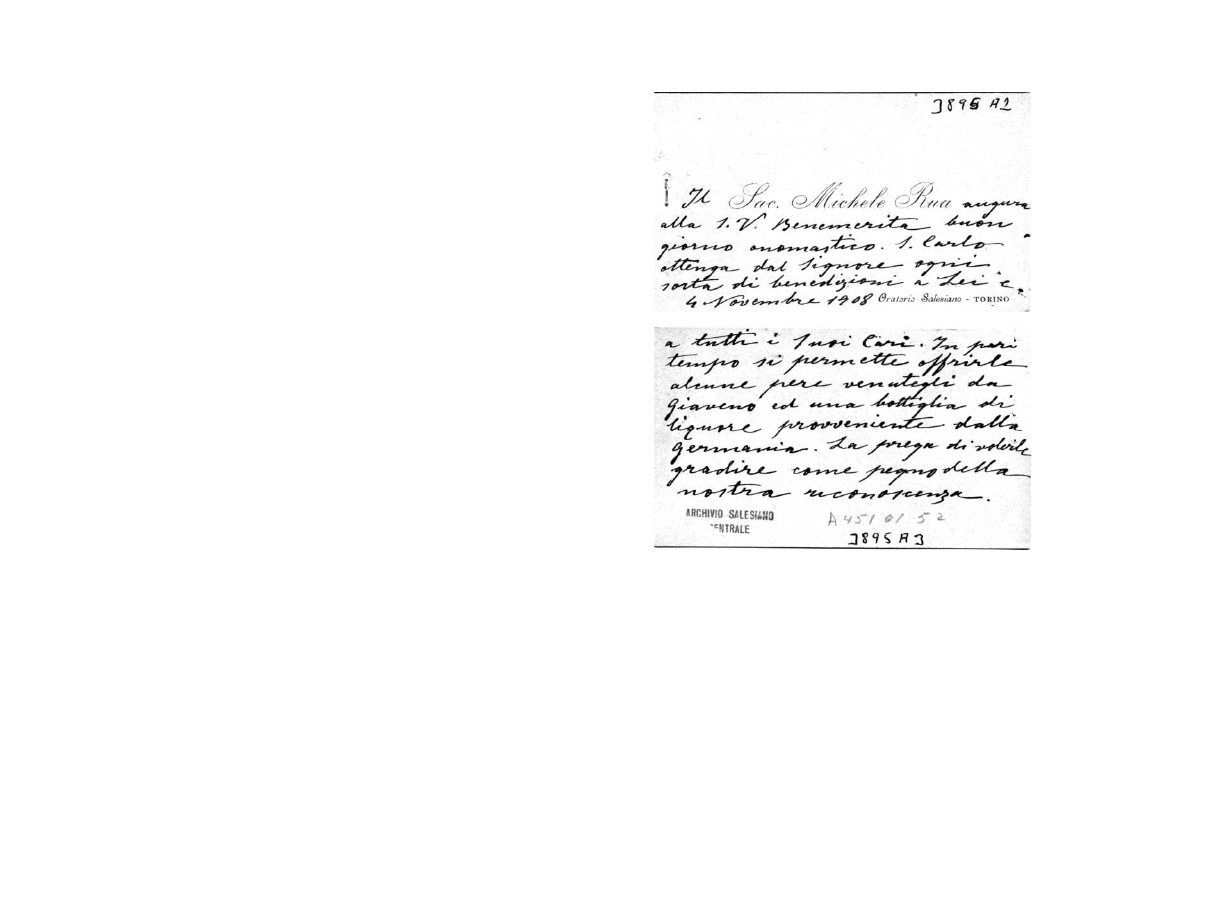 3895 A2
Il Sac. Michele Rua augura
alla S. V. Benemerita buon
giorno onomastico. S. Carlo
ottenga dal Signore ogni
sorta di benedizioni a Lei e
4 Novembre 1908 Oratorio Salesiano - TORINO
a tutti i Suoi Cari. In pari
tempo si permette offrirle
alcune pere venutegli da
Giaveno ed una bottiglia di
liquore proveniente dalla
Germania. La prega di volerle
gradire come pegno della
nostra riconoscenza.
ARCHIVIO SALESIANO
CENTRALE
A 451 01 52
3895 A3